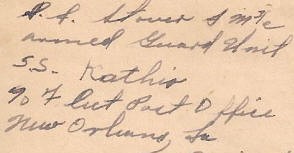 Stover S M 3/c
armed Guard Unit
S.S. Kathio
% Fleet Post Office
New Orleans, La